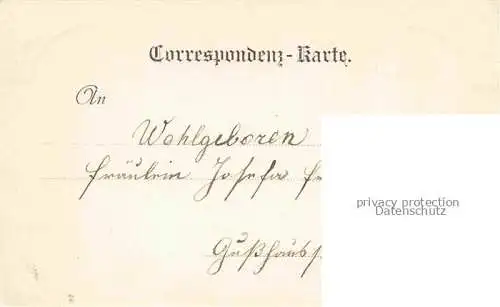 Correspondenz-Karte.
An
Wohlgeboren
Fräulein Josefa
privacy protection
Datenschutz